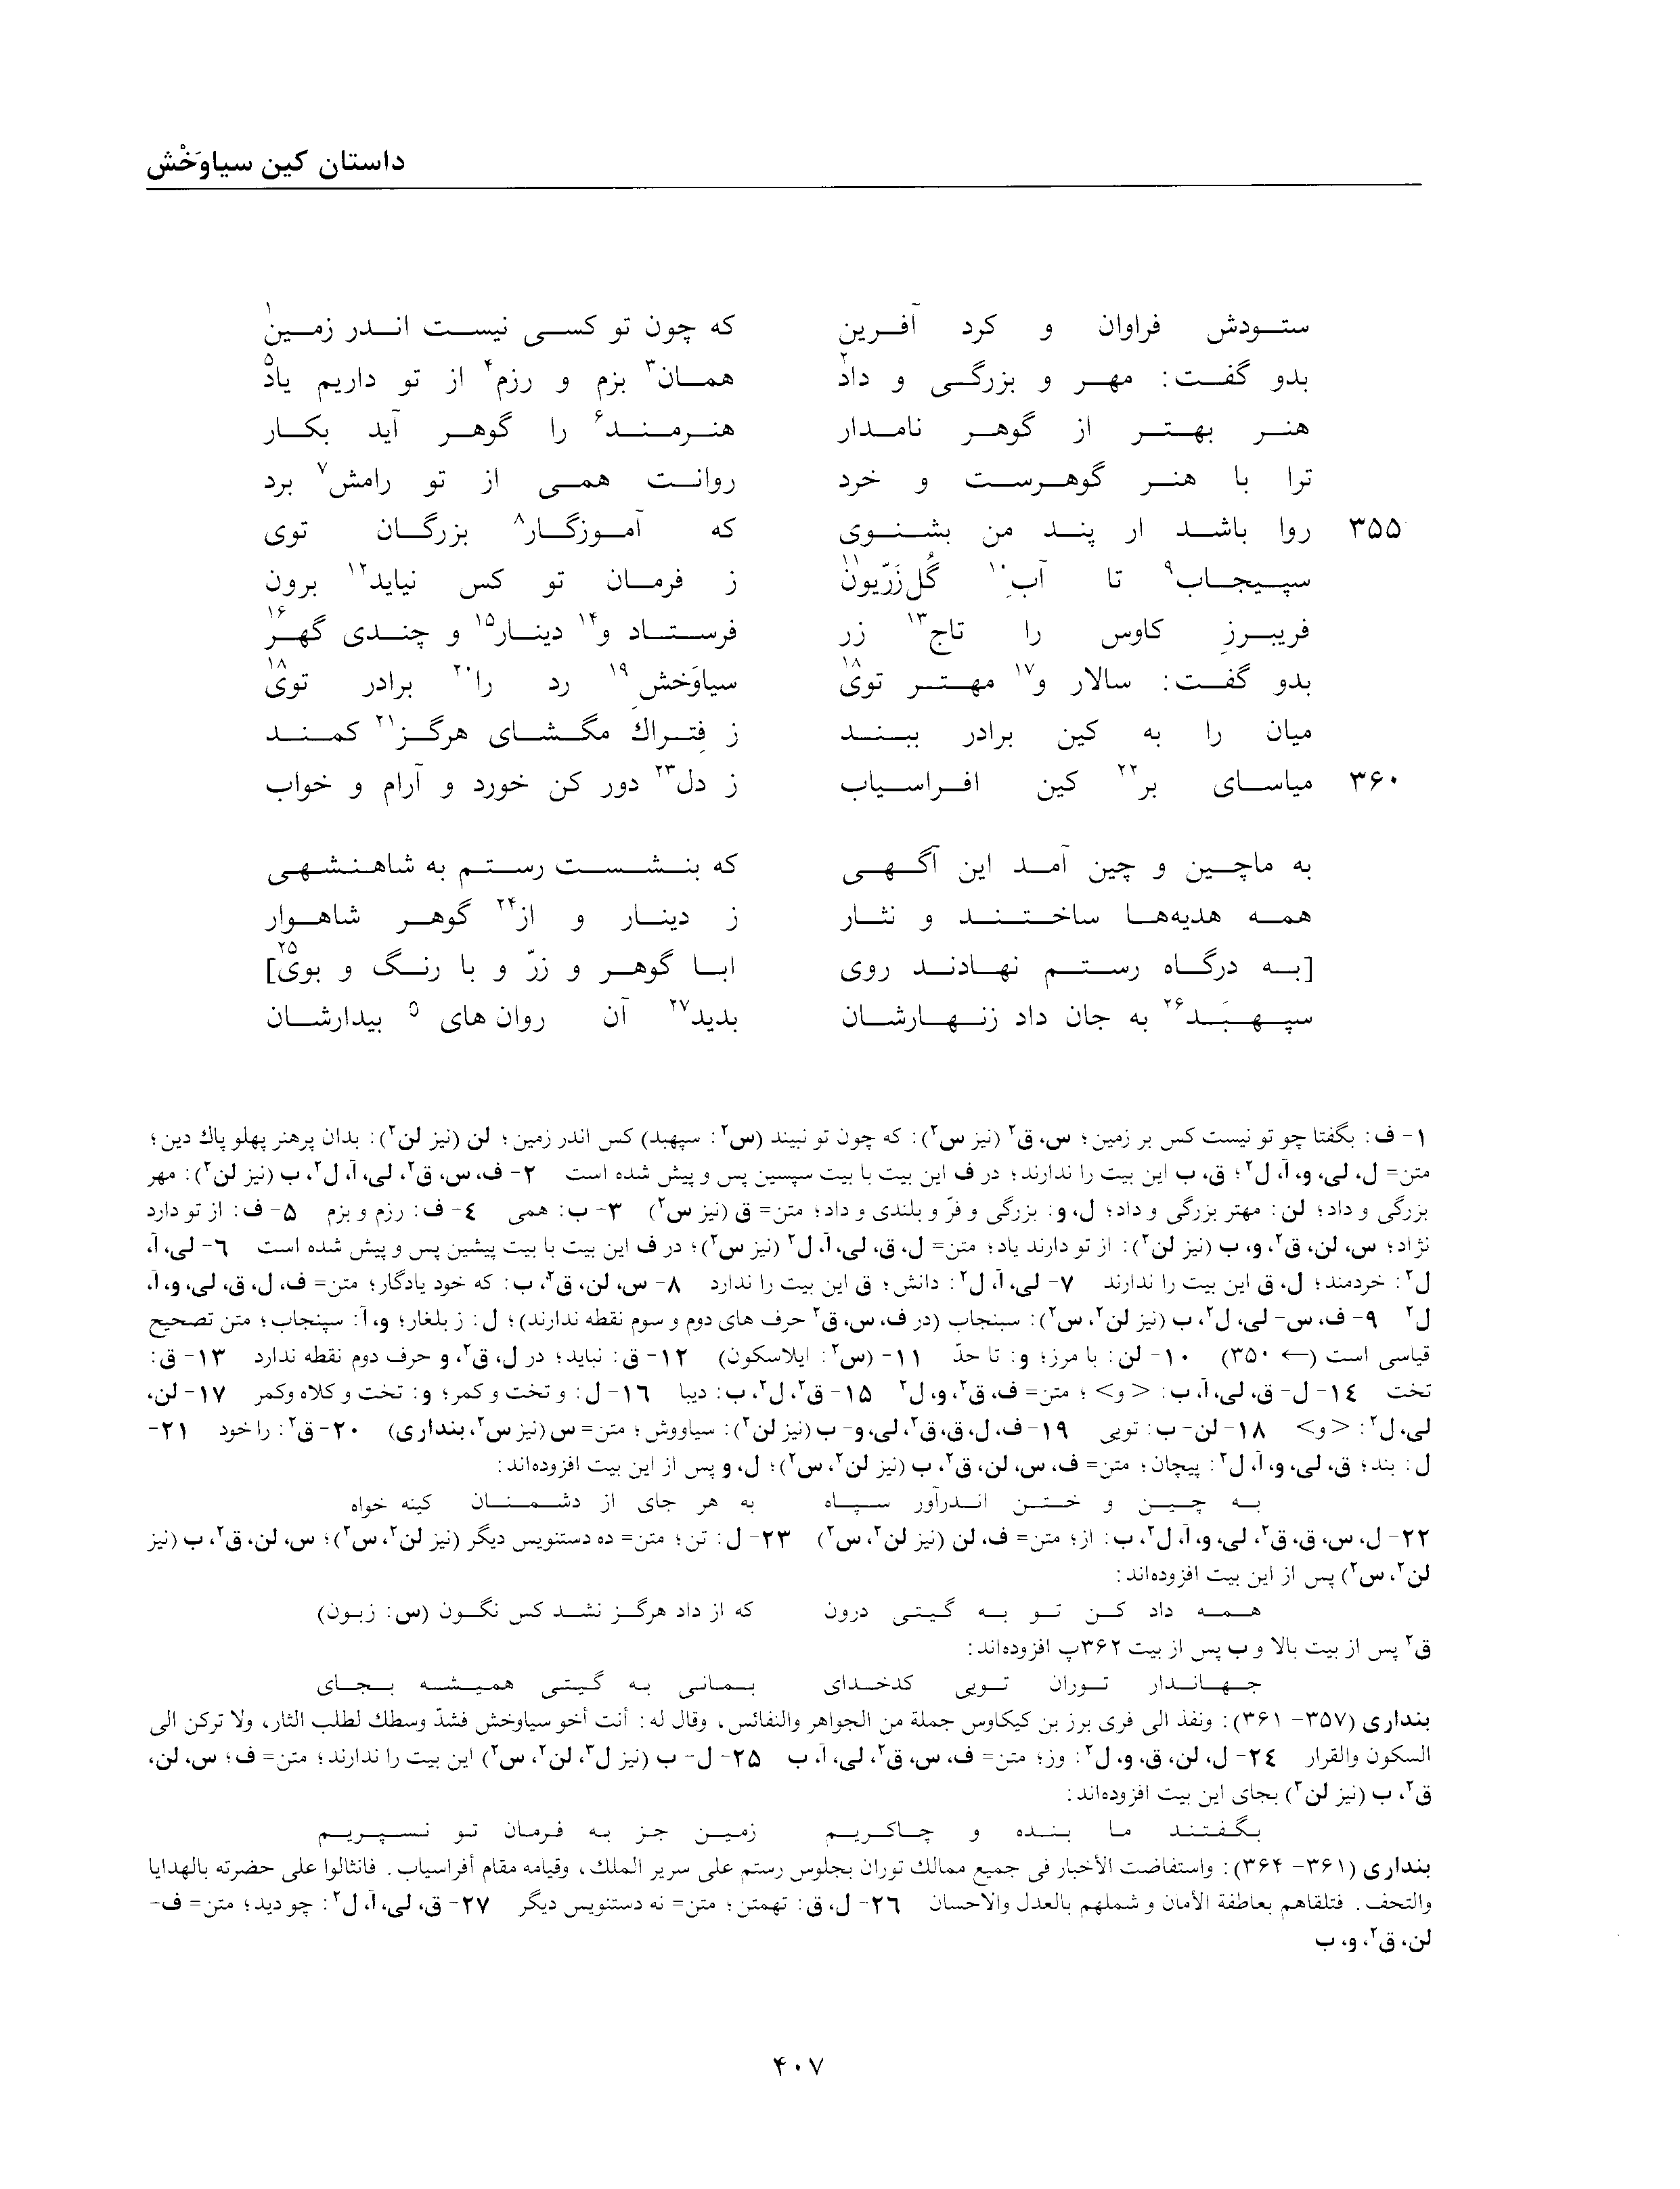 داستان کین سیاوَخْش
ستودش فراوان و کرد آفرین که چون تو کسی نیست اندر زمین۱
بدو گفت: مهر و بزرگی و داد۲ همان۳ بزم و رزم۴ از تو داریم یاد۵
هنر بهتر از گوهر نامدار هنرمند۶ را گوهر آید بکار
ترا با هنر گوهرست و خرد روانت همی از تو رامش۷ برد
۳۵۵ روا باشد ار پند من بشنوی که آموزگار۸ بزرگان توی
سپیجاب۹ تا آبِ۱۰ گُل‌زَرّیون۱۱ ز فرمان تو کس نیاید۱۲ برون
فریبرزِ کاوس را تاج۱۳ زر فرستاد و۱۴ دینار۱۵ و چندی گهر۱۶
بدو گفت: سالار و۱۷ مهتر توی۱۸ سیاوَخشِ۱۹ رد را۲۰ برادر توی۱۸
میان را به کین برادر ببند ز فِتراك مگشای هرگز۲۱ کمند
۳۶۰ میاسای بر۲۲ کین افراسیاب ز دل۲۳ دور کن خورد و آرام و خواب
به ماچین و چین آمد این آگهی که بنشست رستم به شاهنشهی
همه هدیه‌ها ساختند و نثار ز دینار و از۲۴ گوهر شاهوار
[به درگاه رستم نهادند روی ابا گوهر و زرّ و با رنگ و بوی۲۵]
سپهبَد۲۶ به جان داد زنهارشان بدید۲۷ آن روان های بیدارشان
۱- ف: بگفتا چو تو نیست کس بر زمین؛ س، ق۲ (نیز س۲): که چون تو نبیند (س۲: سپهبد) کس اندر زمین؛ لن (نیز لن۲): بدان پرهنر پهلو پاك دین؛
متن= ل، لی، و، آ، ل۲؛ ق، ب این بیت را ندارند؛ در ف این بیت با بیت سپسین پس و پیش شده است ۲- ف، س، ق۲، لی، آ، ل۲، ب (نیز لن۲): مهر
بزرگی و داد؛ لن: مهتر بزرگی و داد؛ ل، و: بزرگی و فرّ و بلندی و داد؛ متن= ق (نیز س۲) ۳- ب: همی ۴- ف: رزم و بزم ۵- ف: از تو دارد
نژاد؛ س، لن، ق۲، و، ب (نیز لن۲): از تو دارند یاد؛ متن= ل، ق، لی، آ، ل۲ (نیز س۲)؛ در ف این بیت با بیت پیشین پس و پیش شده است ۶- لی، آ،
ل۲: خردمند؛ ل، ق این بیت را ندارند ۷- لی، آ، ل۲: دانش؛ ق این بیت را ندارد ۸- س، لن، ق۲، ب: که خود یادگار؛ متن= ف، ل، ق، لی، و، آ،
ل۲ ۹- ف، س- لی، ل۲، ب (نیز لن۲، س۲): سبنجاب (در ف، س، ق۲ حرف های دوم و سوم نقطه ندارند)؛ ل: ز بلغار؛ و، آ: سپنجاب؛ متن تصحیح
قیاسی است (← ۳۵۰) ۱۰- لن: با مرز؛ و: تا حدّ ۱۱- (س۲: ایلاسکون) ۱۲- ق: نباید؛ در ل، ق۲، و حرف دوم نقطه ندارد ۱۳- ق:
تخت ۱۴- ل- ق، لی، آ، ب: <و>؛ متن= ف، ق۲، و، ل۲ ۱۵- ق۲، ل۲، ب: دیبا ۱۶- ل: و تخت و کمر؛ و: تخت و کلاه وکمر ۱۷- لن،
لی، ل۲: <و> ۱۸- لن- ب: تویی ۱۹- ف، ل، ق، ق۲، لی، و- ب (نیز لن۲): سیاووش؛ متن= س (نیز س۲، بنداری) ۲۰- ق۲: را خود ۲۱-
ل: بند؛ ق، لی، و، آ، ل۲: پیچان؛ متن= ف، س، لن، ق۲، ب (نیز لن۲، س۲)؛ ل، و پس از این بیت افزوده‌اند:
به چین و ختن اندرآور سپاه به هر جای از دشمنان کینه خواه
۲۲- ل، س، ق، ق۲، لی، و، آ، ل۲، ب: از؛ متن= ف، لن (نیز لن۲، س۲) ۲۳- ل: تن؛ متن= ده دستنویس دیگر (نیز لن۲، س۲)؛ س، لن، ق۲، ب (نیز
لن۲، س۲) پس از این بیت افزوده‌اند:
همه داد کن تو به گیتی درون که از داد هرگز نشد کس نگون (س: زبون)
ق۲ پس از بیت بالا و ب پس از بیت ۳۶۲پ افزوده‌اند:
جهاندار توران تویی کدخدای بمانی به گیتی همیشه بجای
بنداری (۳۵۷- ۳۶۱): ونفذ الی فری برز بن کیکاوس جملة من الجواهر والنفائس، وقال له: أنت أخو سیاوخش فشدّ وسطك لطلب الثار، ولا ترکن الی
السکون والقرار ۲۴- ل، لن، ق، و، ل۲: وز؛ متن= ف، س، ق۲، لی، آ، ب ۲۵- ل- ب (نیز ل۳، لن۲، س۲) این بیت را ندارند؛ متن= ف؛ س، لن،
ق۲، ب (نیز لن۲) بجای این بیت افزوده‌اند:
بگفتند ما بنده و چاکریم زمین جز به فرمان تو نسپریم
بنداری (۳۶۱- ۳۶۴): واستفاضت الأخبار فی جمیع ممالك توران بجلوس رستم علی سریر الملك، وقیامه مقام أفراسیاب. فانثالوا علی حضرته بالهدایا
والتحف. فتلقاهم بعاطفة الأمان و شملهم بالعدل والاحسان ۲۶- ل، ق: تهمتن؛ متن= نه دستنویس دیگر ۲۷- ق، لی، آ، ل۲: چو دید؛ متن= ف-
لن، ق۲، و، ب
۴۰۷